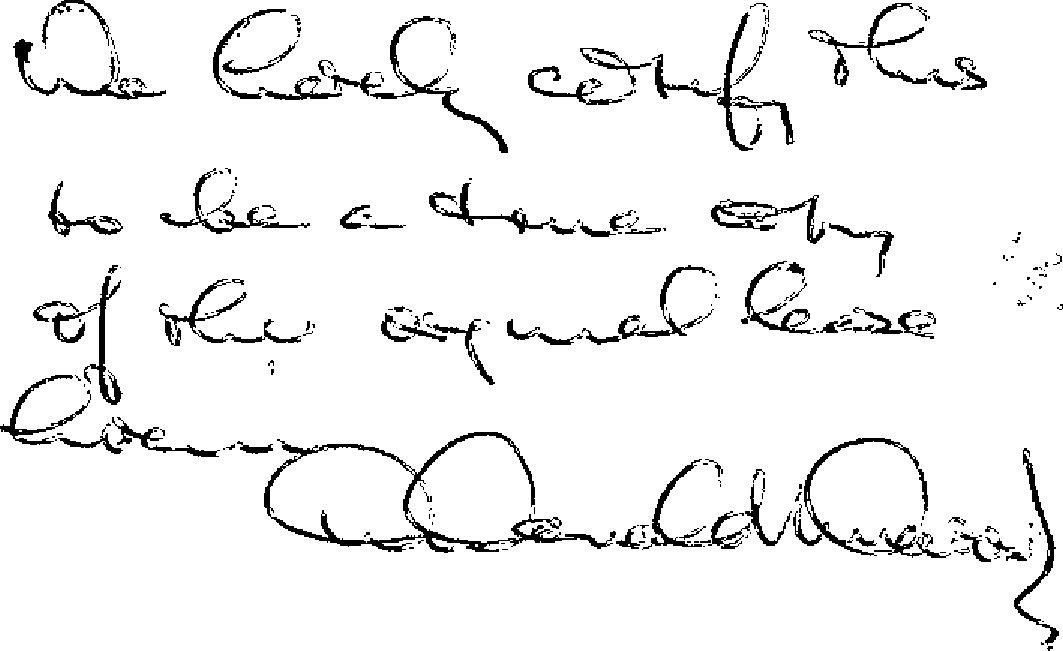 We hereby certify this
to be a true copy
of the original lease
herein